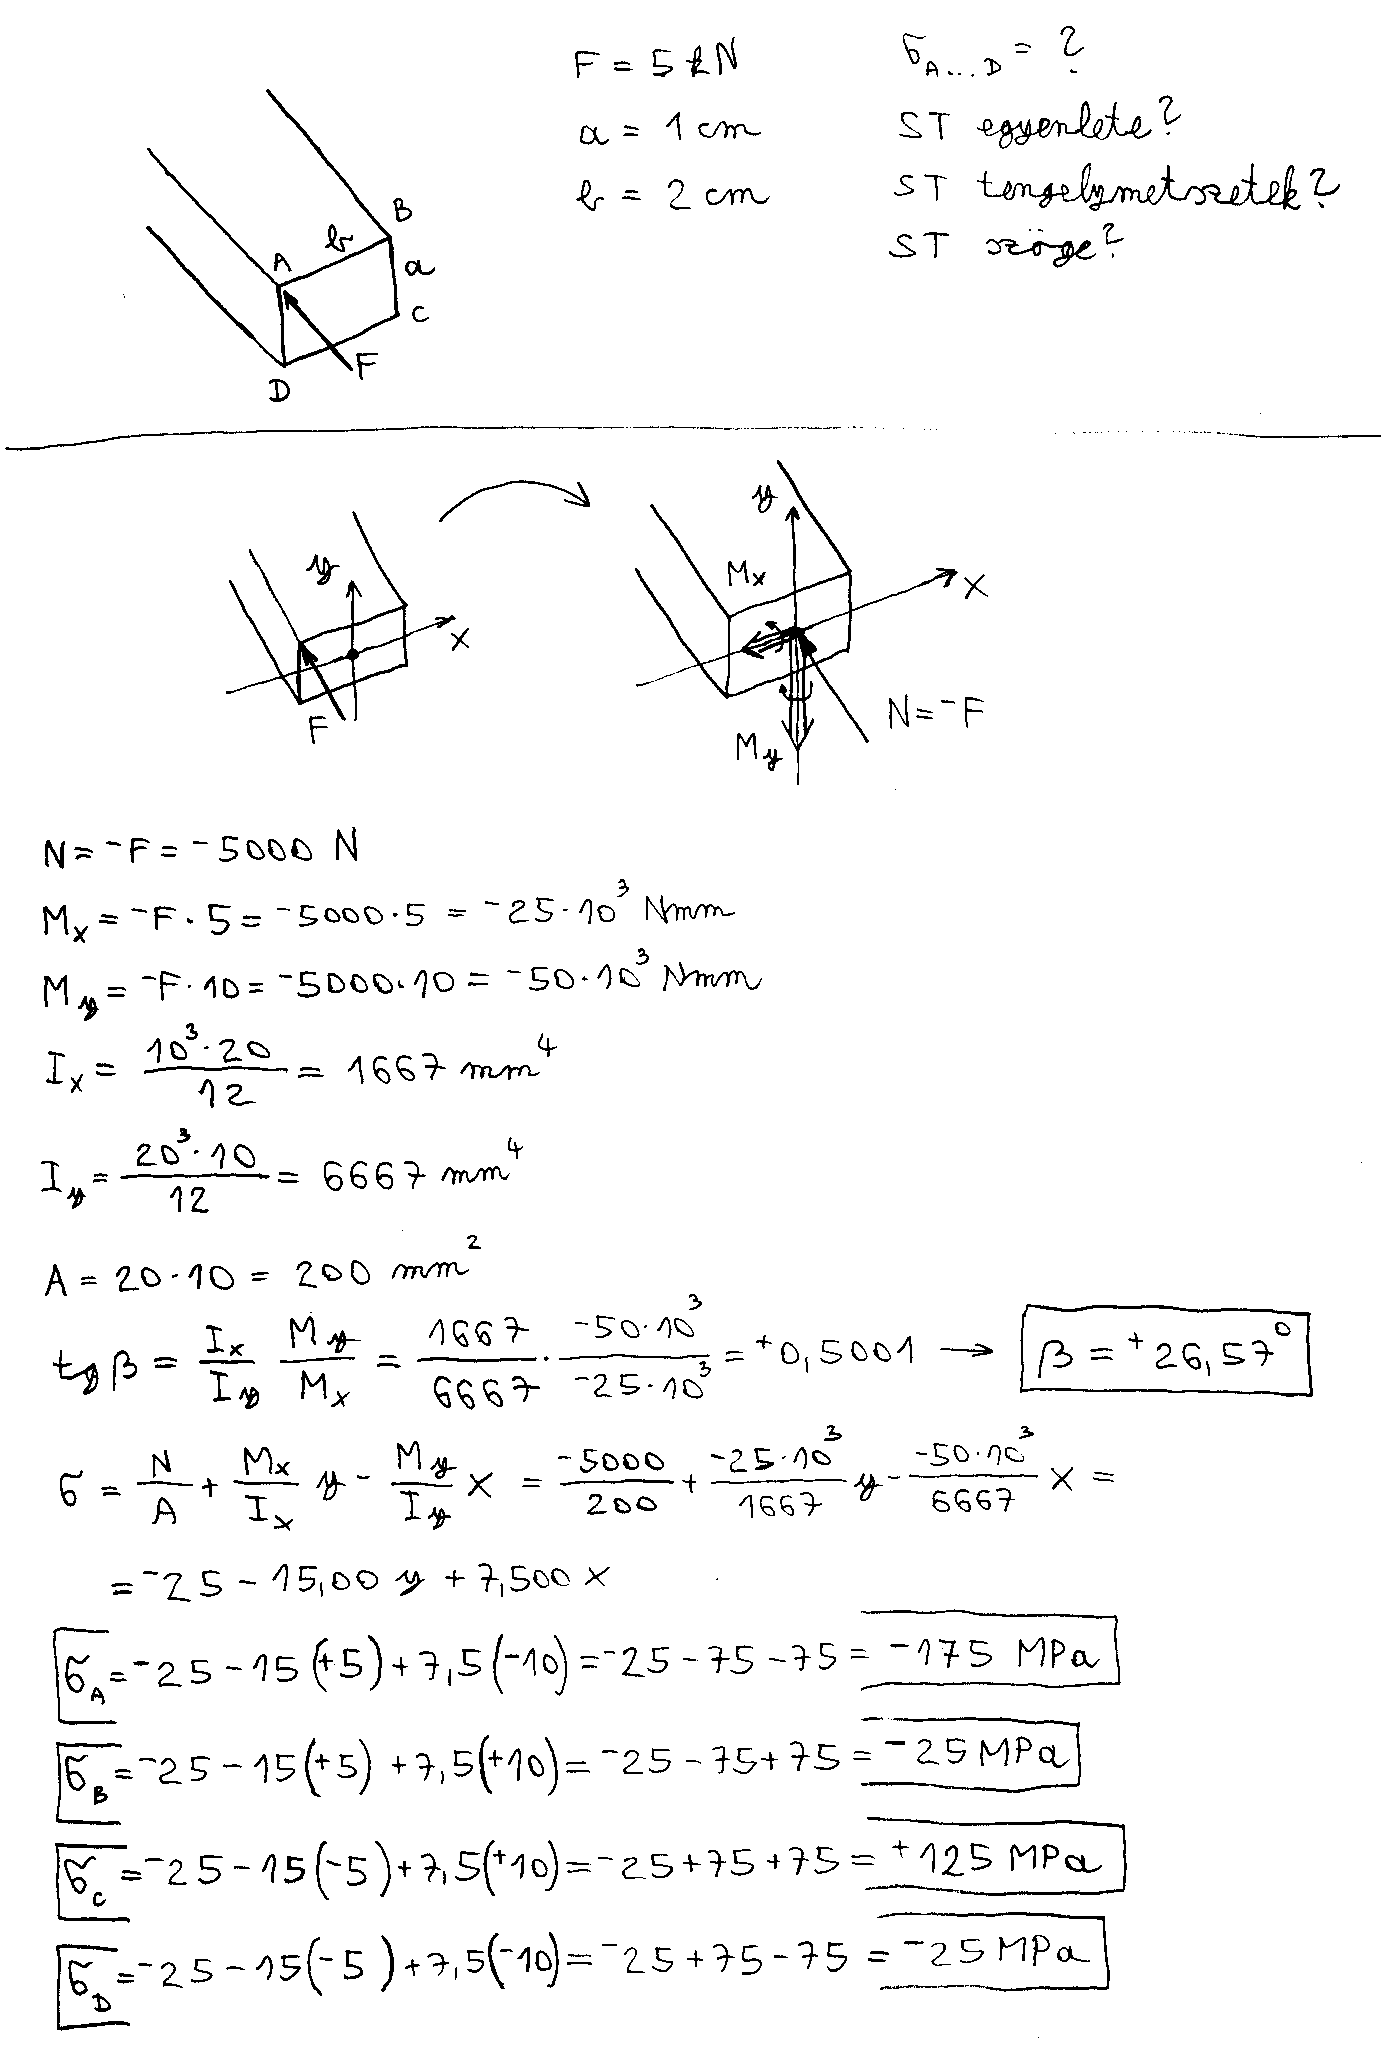 F = 5 kN
a = 1 cm
b = 2 cm
σ_A...D = ?
ST egyenlete?
ST tengelymetszetek?
ST szöge?
A b B a C D F
y x F
y Mx x My N=-F
N=-F=-5000 N
Mx=-F·5=-5000·5=-25·10³ Nmm
My=-F·10=-5000·10=-50·10³ Nmm
Ix= 10³·20/12 = 1667 mm⁴
Iy= 20³·10/12 = 6667 mm⁴
A=20·10=200 mm²
tg β = Ix/Iy My/Mx = 1667/6667 · -50·10³/-25·10³ = +0,5001 → β=+26,57°
σ = N/A + Mx/Ix y - My/Iy x = -5000/200 + -25·10³/1667 y - -50·10³/6667 x =
=-25-15,00 y+7,500 x
σ_A=-25-15(+5)+7,5(-10)=-25-75-75=-175 MPa
σ_B=-25-15(+5)+7,5(+10)=-25-75+75=-25 MPa
σ_C=-25-15(-5)+7,5(+10)=-25+75+75=+125 MPa
σ_D=-25-15(-5)+7,5(-10)=-25+75-75=-25 MPa